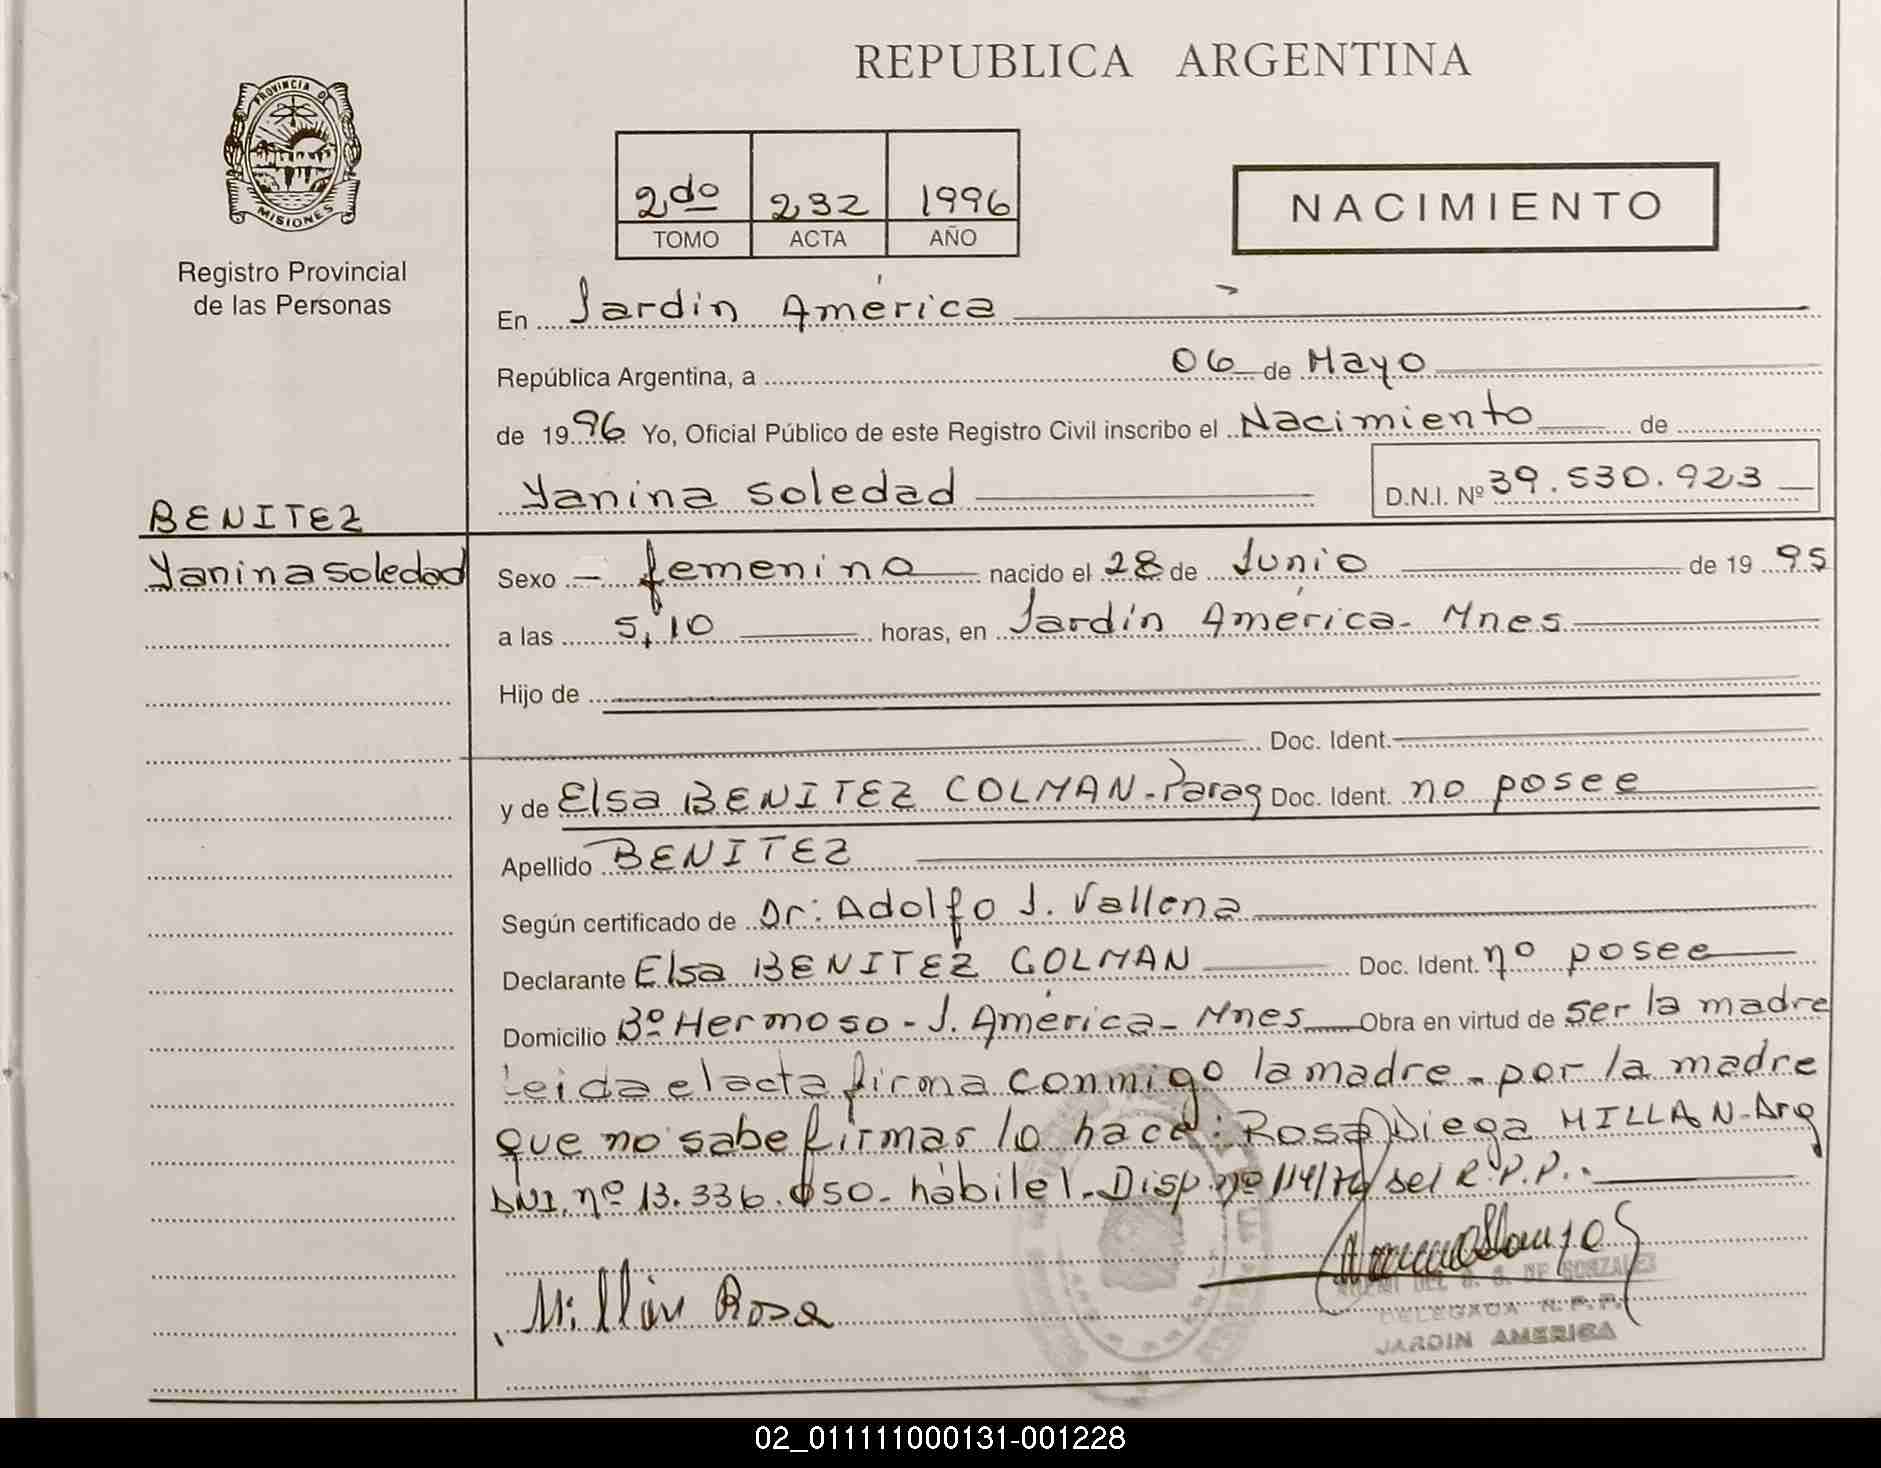 REPUBLICA ARGENTINA
PROVINCIA DE
MISIONES
Registro Provincial
de las Personas
2do 232 1996
TOMO ACTA AÑO
NACIMIENTO
En Jardín América
República Argentina, a 06 de Mayo
de 1996 Yo, Oficial Público de este Registro Civil inscribo el Nacimiento de
Yanina Soledad D.N.I. Nº 39.530.923
BENITEZ
Yanina Soledad
Sexo - femenino nacido el 28 de Junio de 1995
a las 5,10 horas, en Jardín América - Mnes
Hijo de
Doc. Ident.
y de Elsa BENITEZ COLMAN - Parag Doc. Ident. no posee
Apellido BENITEZ
Según certificado de Dr: Adolfo J. Vallena
Declarante Elsa BENITEZ COLMAN Doc. Ident. no posee
Domicilio Bº Hermoso - J. América - Mnes Obra en virtud de ser la madre
Leida el acta firma conmigo la madre - por la madre
que no sabe firmar lo hace: Rosa Diega MILLAN - Arg
DNI. nº 13.336.050 - hábil el - Disp nº 114/76 del R.P.P.
Millán Rosa
DE GONZALEZ
DELEGADA R.P.P.
JARDIN AMERICA
02_011111000131-001228